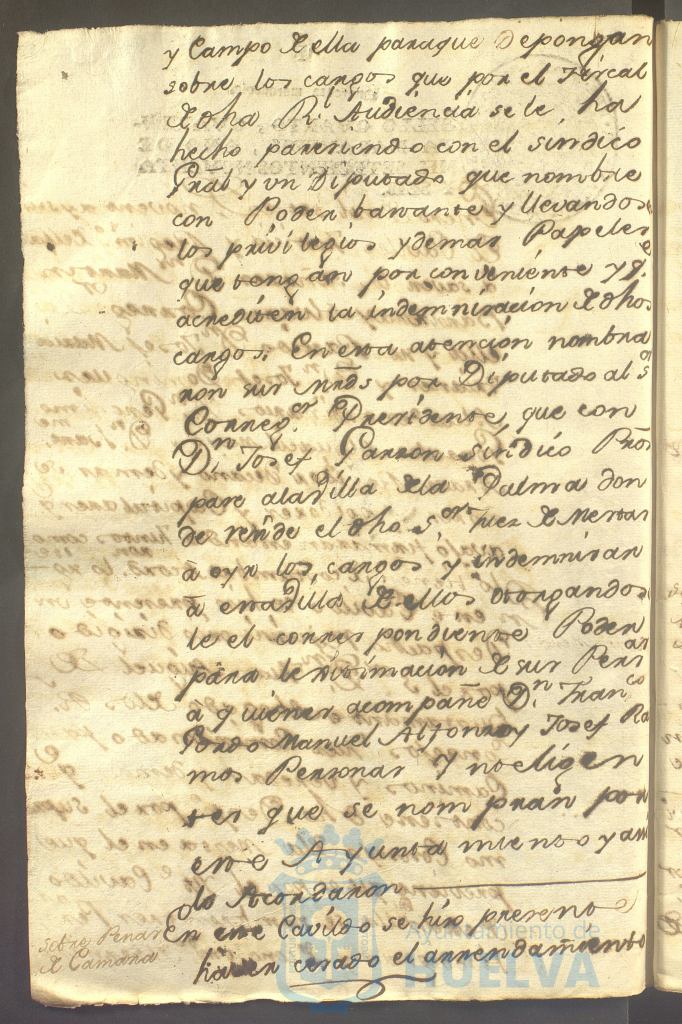 y Campo de ella paraque Depongan
sobre los cargos que por el Fiscal
de dha Rl. Audiencia se le ha
hecho pareciendo con el sindico
Gral y vn Diputado que nombre
con Poder bastante y llevandose
los privilegios y demas Papeles
que tengan por conveniente y q.e
acrediten la indemnizacion de dhos
cargos. En esta atencion nombra
ron sus mrds por Diputado al s.or
Correg.or Presidente, que con
D.n Josef Garzon sindico
pase ala villa de la Palma don
de reside el dho s.or Juez de Mestas
à oyr los cargos y indemnisar
à esta villa de ellos otorgandose
le el correspondiente Poder
para lexitimacion de sus Per.as
à quienes acompañe D.n Fran.co
Manuel Alfonso y Josef Ra
mos Personas Ynteligen
tes que se nombran por
este Ayuntamiento y asi
lo Acordaron
sobre Penas
de Camara
En este Cavildo se hizo presente
haver cesado el arrendamiento
Ayuntamiento de
HUELVA